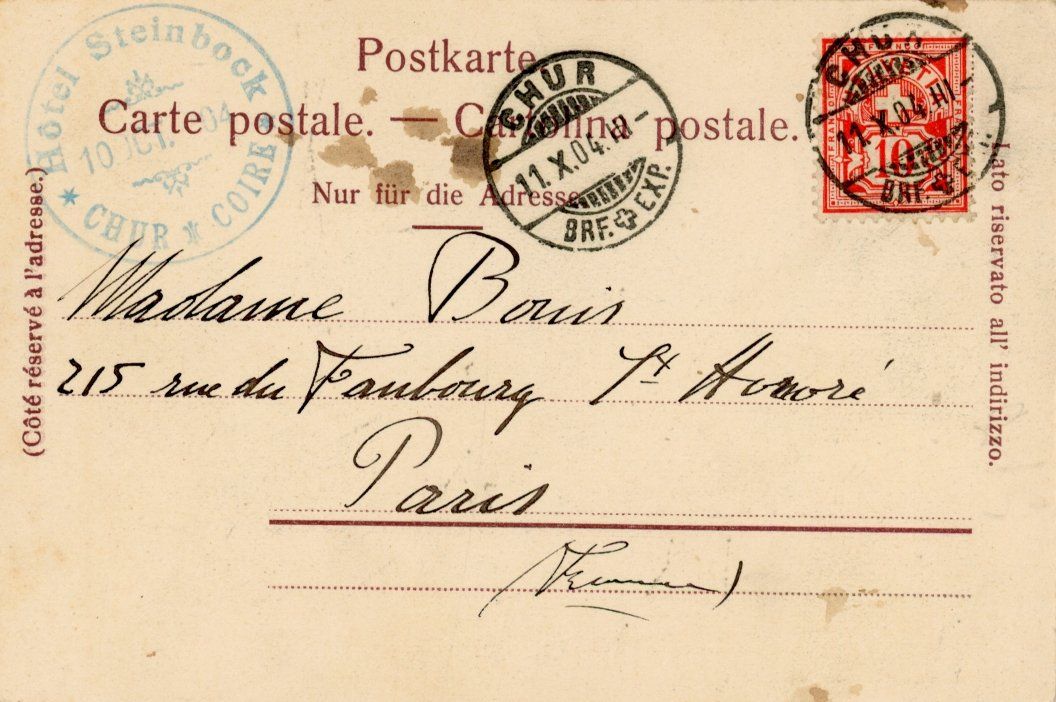 Hôtel Steinbock
10 OCT. 04
★ CHUR ★ COIRE ★
Postkarte
Carte postale. — Cartolina postale.
Nur für die Adresse
CHUR
11.X.04.
BRF. EXP.
CHUR
11.X.04.
BRF. EXP.
FRANCO
10
(Côté réservé à l'adresse.)
Lato riservato all' indirizzo.
Madame Bouis
215 rue du Faubourg St Honoré
Paris